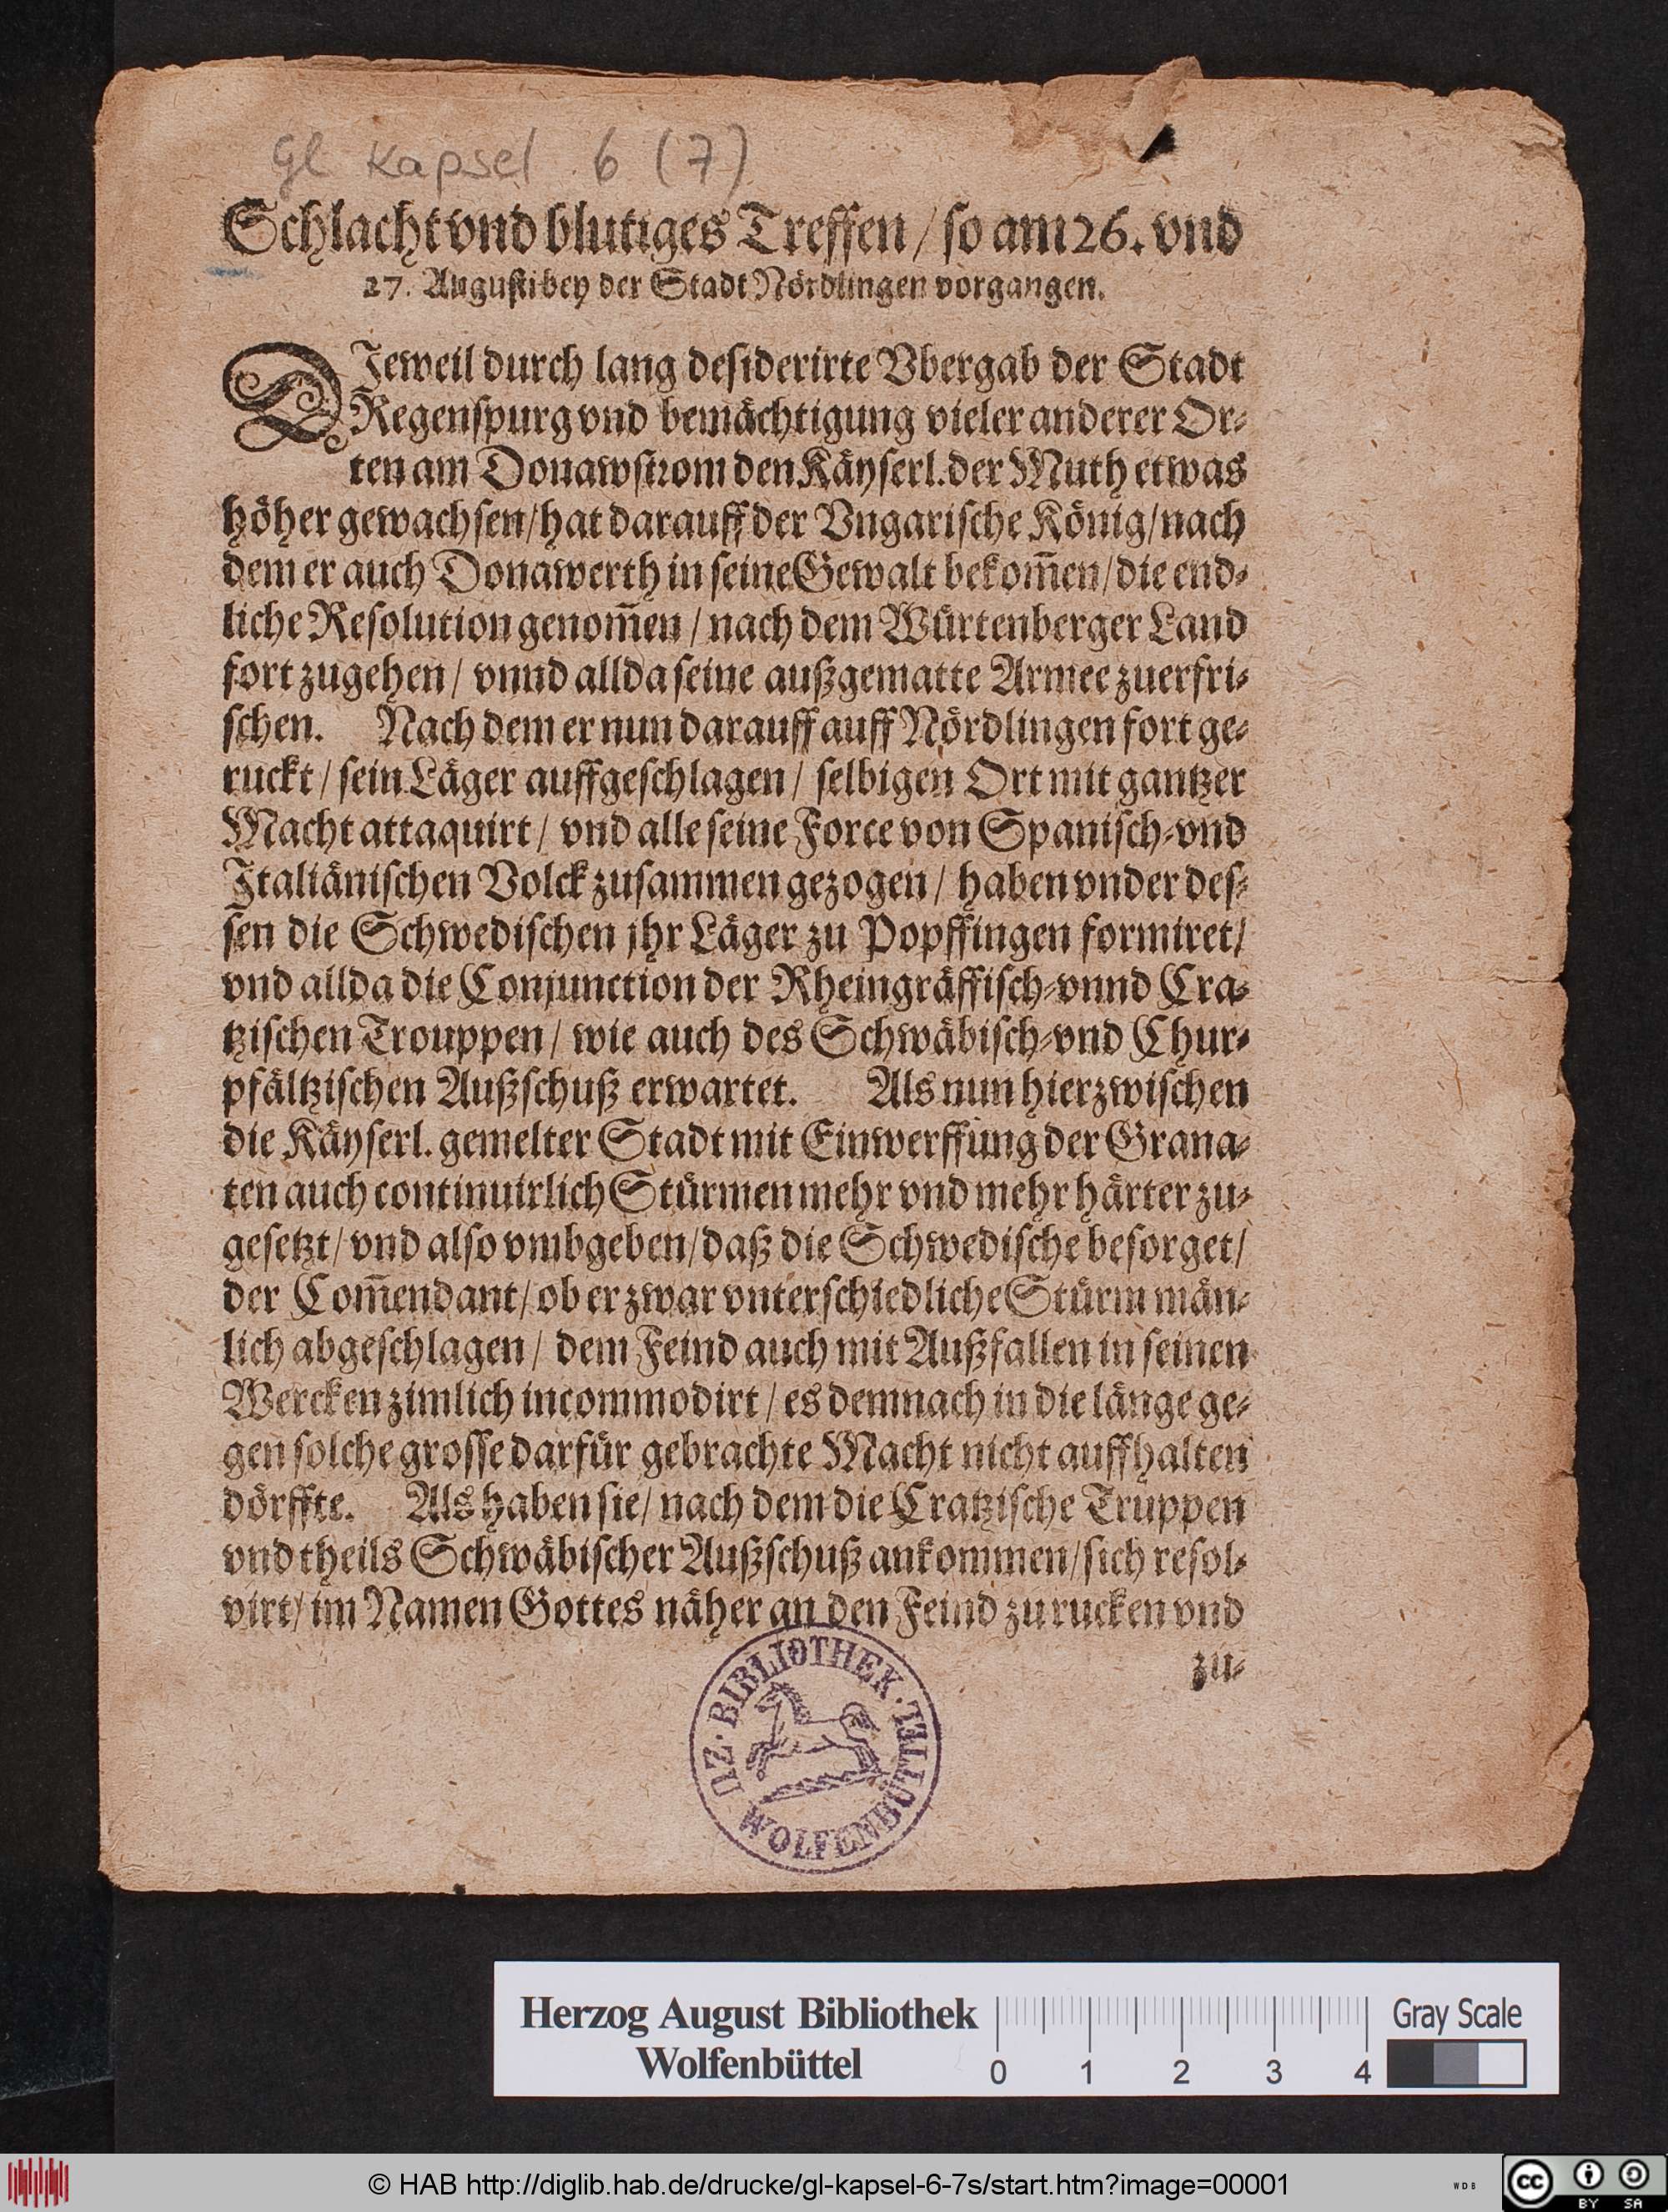 Gl Kapsel 6 (7)
Schlacht vnd blutiges Treffen / so am 26. vnd
27. Augusti bey der Stadt Nördlingen vorgangen.
DJeweil durch lang desiderirte Vbergab der Stadt
Regenspurg vnd bemächtigung vieler anderer Or-
ten am Donawstrom den Käyserl. der Muth etwas
höher gewachsen/ hat darauff der Vngarische König/ nach
dem er auch Donawerth in seine Gewalt bekom̃en/ die end-
liche Resolution genom̃en / nach dem Würtenberger Land
fort zugehen / vnnd allda seine außgematte Armee zuerfri-
schen. Nach dem er nun darauff auff Nördlingen fort ge-
ruckt / sein Läger auffgeschlagen / selbigen Ort mit gantzer
Macht attaquirt / vnd alle seine Force von Spanisch-vnd
Jtaliänischen Volck zusammen gezogen / haben vnder des-
sen die Schwedischen jhr Läger zu Popffingen formiret/
vnd allda die Conjunction der Rheingräffisch-vnnd Cra-
tzischen Trouppen / wie auch des Schwäbisch-vnd Chur-
pfältzischen Außschuß erwartet. Als nun hierzwischen
die Käyserl. gemelter Stadt mit Einwerffung der Grana-
ten auch continuirlich Stürmen mehr vnd mehr härter zu-
gesetzt/ vnd also vmbgeben/ daß die Schwedische besorget/
der Com̃endant/ ob er zwar vnterschiedliche Stürm män-
lich abgeschlagen / dem Feind auch mit Außfallen in seinen
Wercken zimlich incommodirt / es demnach in die länge ge-
gen solche grosse darfür gebrachte Macht nicht auffhalten
dörffte. Als haben sie/ nach dem die Cratzische Truppen
vnd theils Schwäbischer Außschuß ankommen/ sich resol-
virt/ im Namen Gottes näher an den Feind zu rucken vnd
zu-
HZ·BIBLIOTHEK·
WOLFENBÜTTEL
Herzog August Bibliothek
Wolfenbüttel
0 1 2 3 4
Gray Scale
© HAB http://diglib.hab.de/drucke/gl-kapsel-6-7s/start.htm?image=00001
WDB
cc BY SA